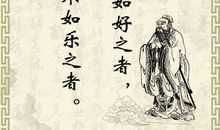 如好之者，
不如乐之者。